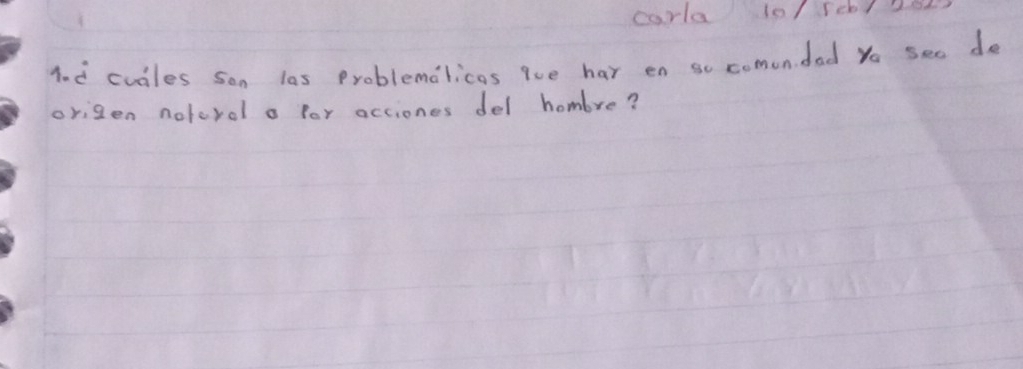 carla 10/feb/2025
1.¿ cuáles son las problemáticas que hay en su comunidad ya sea de
origen natural o por acciones del hombre?